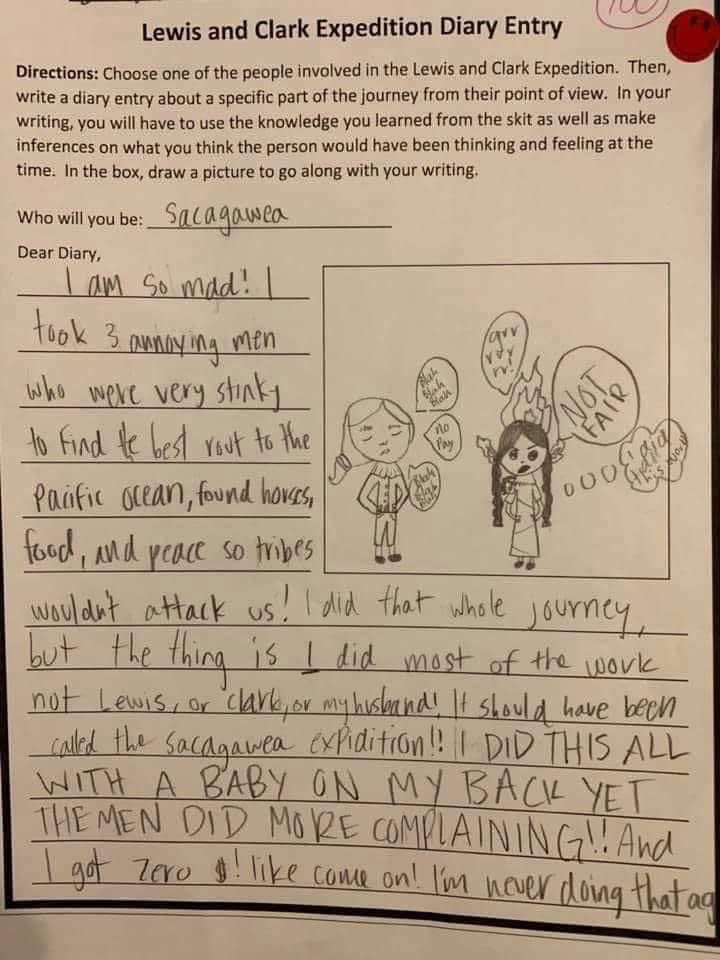 100
Lewis and Clark Expedition Diary Entry
Directions: Choose one of the people involved in the Lewis and Clark Expedition. Then,
write a diary entry about a specific part of the journey from their point of view. In your
writing, you will have to use the knowledge you learned from the skit as well as make
inferences on what you think the person would have been thinking and feeling at the
time. In the box, draw a picture to go along with your writing.
Who will you be: Sacagawea
Dear Diary,
I am so mad! I
took 3 annoying men
who were very stinky
to find the best rout to the
Pacific ocean, found horses,
food, and peace so tribes
wouldn't attack us! I did that whole journey,
but the thing is I did most of the work
not Lewis, or Clark, or my husband! It should have been
called the Sacagawea expidition!! I DID THIS ALL
WITH A BABY ON MY BACK YET
THE MEN DID MORE COMPLAINING!! And
I got zero $! like come on! I'm never doing that ag
Blah
Blah
Blah
no
Pay
Blah
Blah
Blah
grr
rrr
rr!
NOT
FAIR